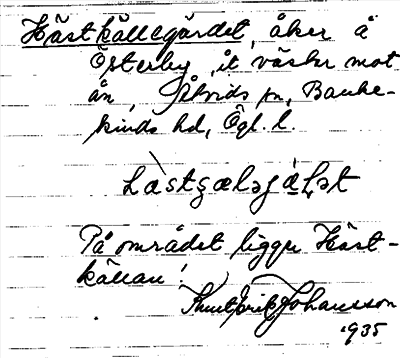 Hästkällegärdet, åker å
Österby, åt väster mot
ån, Åtvids sn, Banke-
kinds hd, Ögl. l.
På området ligger Häst-
källan.
Knut Erik Johansson
1935